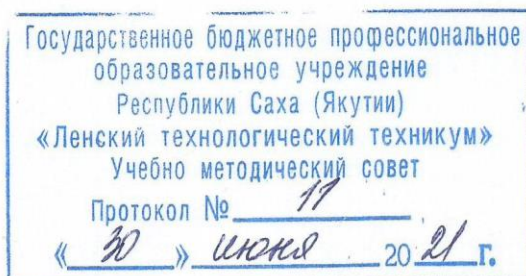 Государственное бюджетное профессиональное
образовательное учреждение
Республики Саха (Якутии)
«Ленский технологический техникум»
Учебно методический совет
Протокол № 11
«30» июня 2021 г.